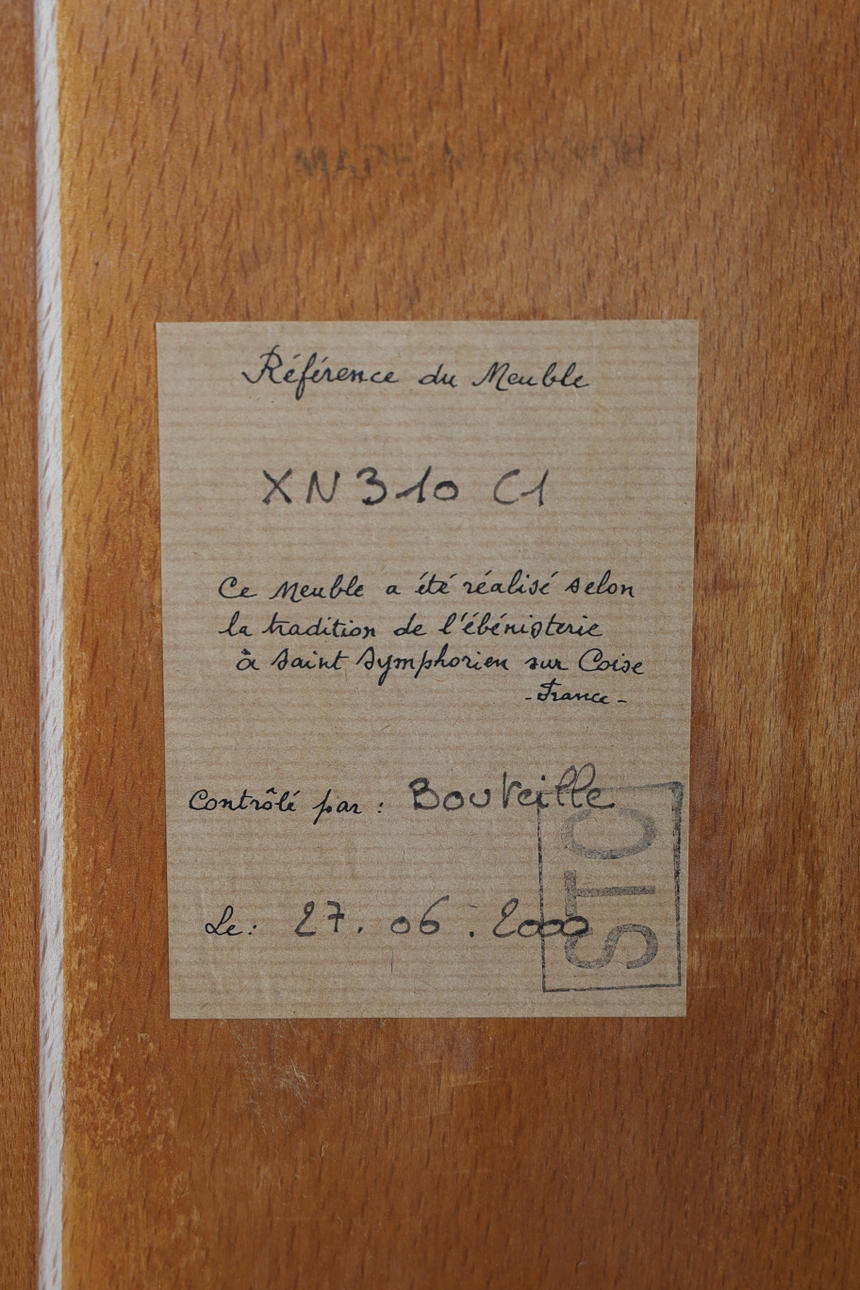 Référence du Meuble
XN310 C1
Ce Meuble a été réalisé selon
la tradition de l'ébénisterie
à Saint Symphorien sur Coise
- France -
Contrôlé par : Bouteille
Le : 27. 06. 2000
STC